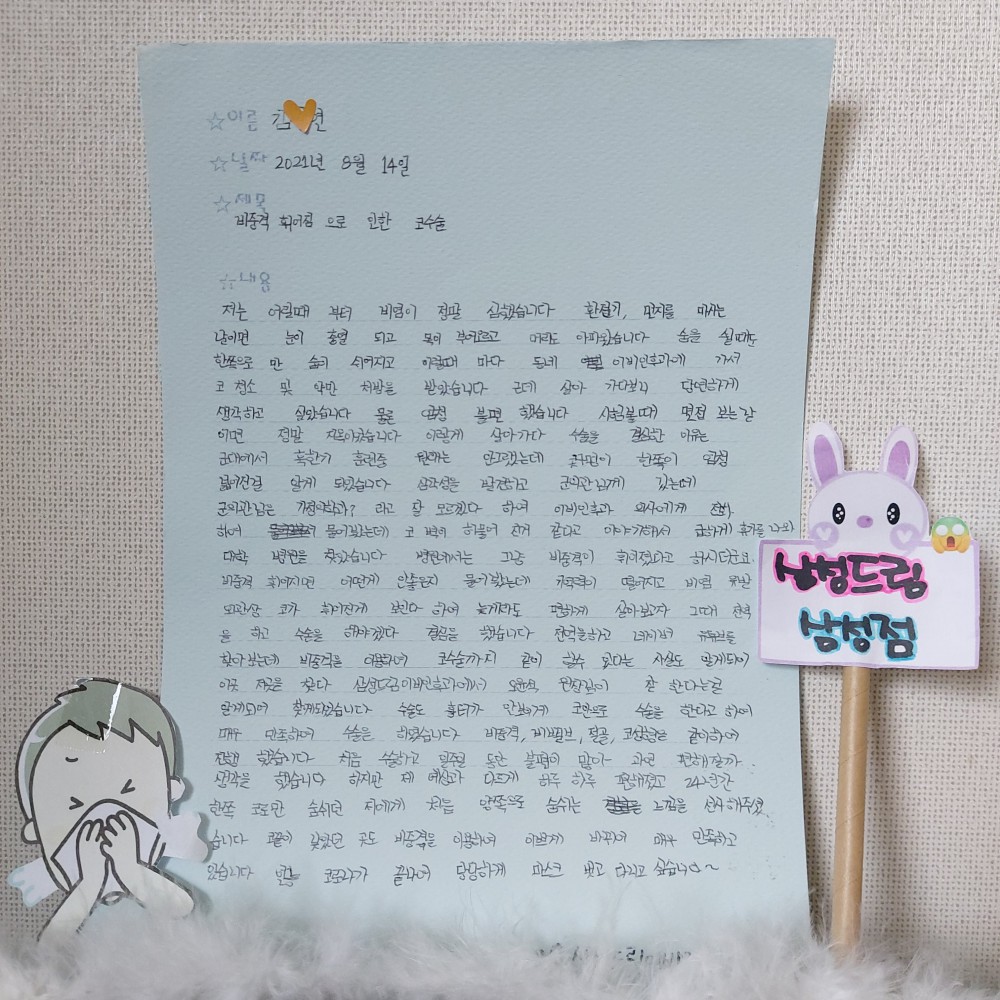 ☆이름 김 현
☆날짜 2021년 8월 14일
☆제목
비중격 휘어짐 으로 인한 코수술
☆내용
저는 어릴때 부터 비염이 정말 심했습니다 환절기, 먼지를 마시는
날이면 눈이 충혈 되고 목이 부어오르고 머리도 아파왔습니다 숨을 쉴때도
한쪽으로 만 숨이 쉬어지고 이럴때 마다 동네 이비인후과에 가서
코 청소 및 약만 처방을 받았습니다 근데 살아 가다보니 당연하게
생각하고 살았습니다 물론 엄청 불편 했습니다 사람볼때 면접 보는날
이면 정말 지옥이였습니다 이렇게 살아가다 수술을 결심한 이유는
군대에서 혹한기 훈련중 원래는 안그랬는데 한쪽이 엄청
넓어진걸 알게 되었습니다 심각성을 발견하고 군의관님께 갔는데
군의관님은 가정의학과? 라고 잘 모르겠다 하여 이비인후과 의사에게
하여 물어봤는데 코 벽이 허물어 진거 같다고 이야기하셔서 급하게 휴가를 나와
대학 병원을 찾았습니다 병원에서는 그냥 비중격이 휘어졌다고 하시더군요
비중격 휘어지면 어떤게 안좋은지 물어봤는데 기억력이 떨어지고 비염 유발
외관상 코가 휘어진게 보인다 하여 늦게라도 편하게 살아보고자 그때 전역
을 하고 수술을 해야겠다 결심을 했습니다 전역을하고 네이버 유튜브를
찾아보는데 비중격을 이용하여 코수술까지 같이 할수 있다는 사실도 알게되어
이곳 저곳을 찾다 삼성드림이비인후과에서 오윤석 원장님이 잘 한다는걸
알게되어 찾게되었습니다 수술도 흉터가 안보이게 코안으로 수술을 한다고 하여
매우 만족하여 수술을 하였습니다 비중격, 비밸브, 절골, 코성형을 같이하여
진행 했습니다 처음 수술하고 일주일 동안 불편이 많아 과연 편해질까
생각을 했습니다 하지만 제 예상과 다르게 하루 하루 편해졌고 24년간
한쪽 코로만 숨쉬던 저에게 처음 양쪽으로 숨쉬는 느낌을 선사해주셨
습니다 코끝이 낮았던 곳도 비중격을 이용하여 이쁘게 바뀌어 매우 만족하고
있습니다 코로나가 끝나여 당당하게 마스크 벗고 다니고 싶습니다~
삼성드림
삼성점